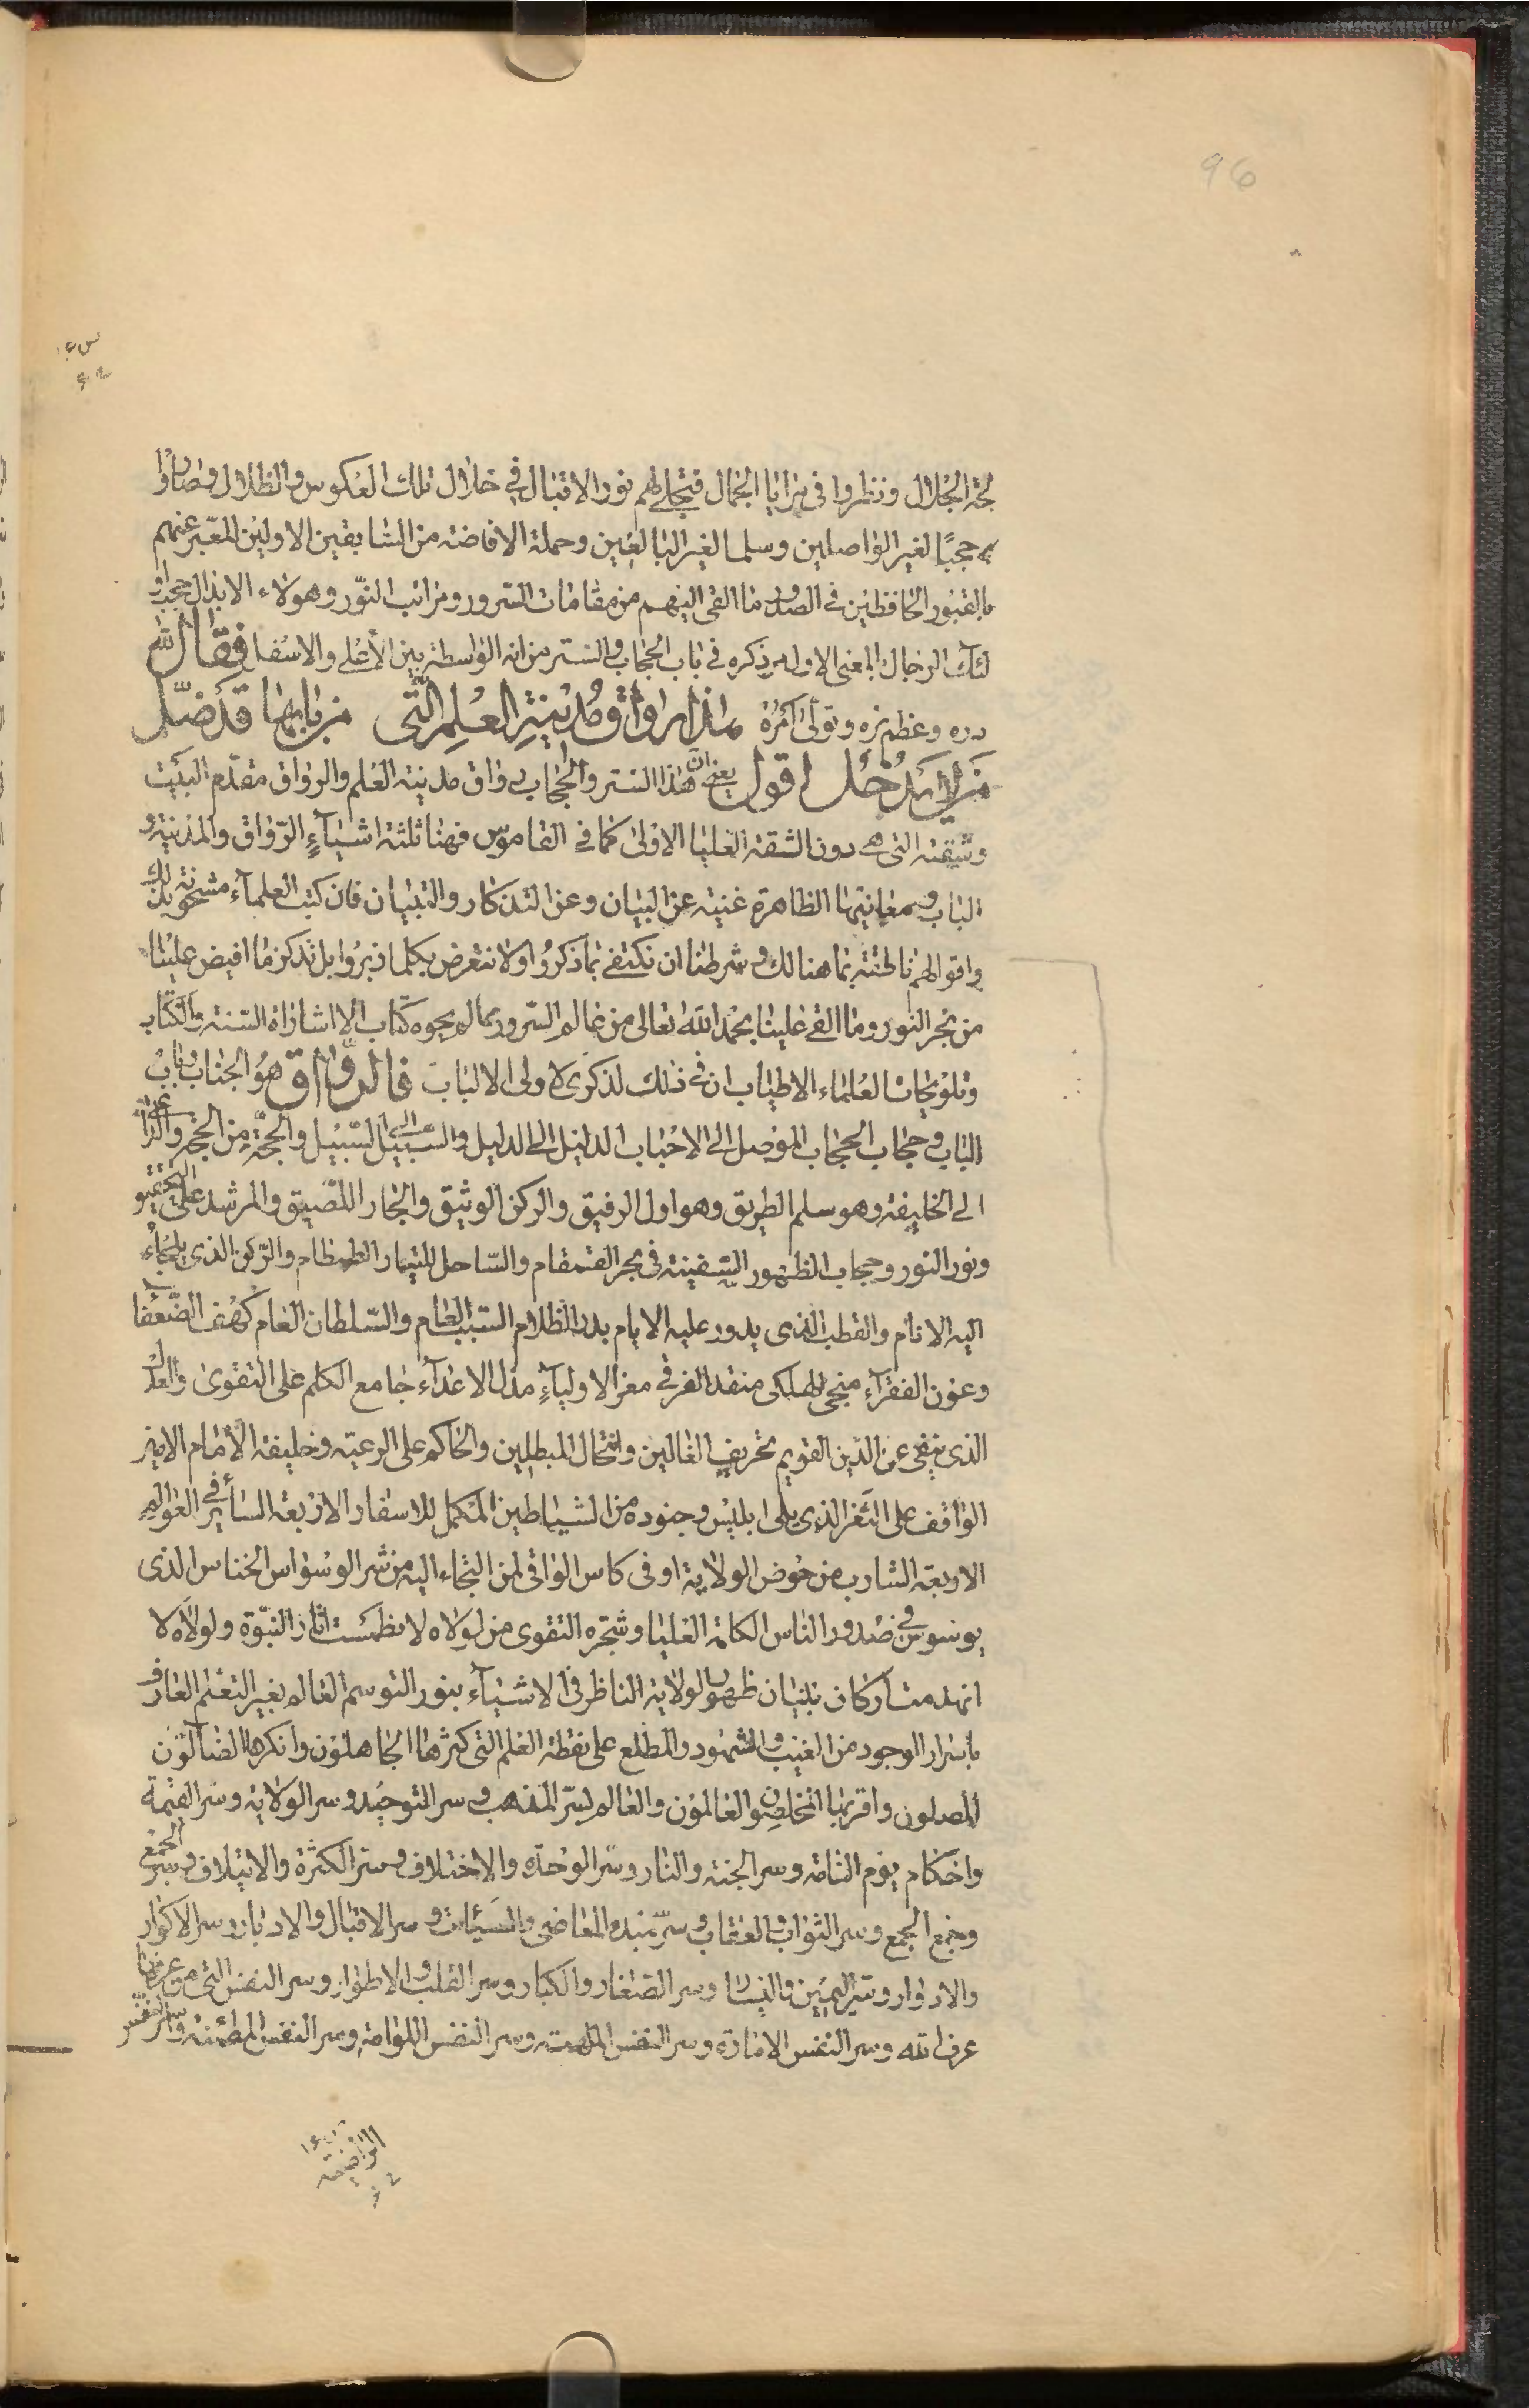 96
لجة الجلال ونظروا فى مرايا الجمال فتجلى لهم نور الاقبال فى خلال تلك العكوس والظلال وصاروا
حجبًا لغير الواصلين وسلما لغير البالغين وحملة الافاضة من السابقين الاولين المعبر عنهم
بالقبور الحافظين فى الصدور ما القى اليهم من مقامات السرور ومراتب النور وهولاء الابدال حجاب او
لئك الرجال بالمعنى الاول مر ذكره فى باب الحجاب والستر من انه الواسطة بين الأعلى والاسفل فقال لله
دره وعظم بره وتولى امره هذا رواق مدينة العلم التى من بابها قد ضل
من لا يدخل اقول يعنى ان هذا الستر والحجاب رواق مدينة العلم والرواق مقدم البيت
وشقته التى هى دون الشقة العليا الاولى كما فى القاموس فهنا ثلثة اشياء الرواق والمدينة و
الباب ومعانيها الظاهرة غنية عن البيان وعن التذكار والتبيان فان كتب العلماء مشحونة بذلك
واقوالهم ناطقة بما هنالك وشرطنا ان نكتفى بما ذكروا ولا نتعرض بكلما زبروا بل نذكر ما افيض علينا
من بحر النور وما القى علينا بحمد الله تعالى من عالم السرور بما لم يحوه كتاب الا اشارات السنة والكتاب
وتلويحات العلماء الاطياب ان فى ذلك لذكرى لاولى الالباب فالرواق هو الجناب باب
الباب وحجاب الحجاب الموصل الى الاحباب الدليل الى الدليل والسبيل الى السبيل والحجة من الحجة والداعى
الى الخليفة وهو سلم الطريق وهو اول الرفيق والركن الوثيق والجار اللصيق والمرشد على التحقيق
ونور النور وحجاب الظهور السفينة فى بحر القمقام والساحل للتيار الطمطام والركن الذى يلجاء
اليه الانام والقطب الذى يدور عليه الايام بدر الظلام السبب العام والسلطان العام كهف الضعفا
وعون الفقراء منجى الهلكى منقذ الغرقى معز الاولياء مذل الاعداء جامع الكلم على التقوى والعدل
الذى ينفى عن الدين القويم تحريف الغالين وانتحال المبطلين والحاكم على الرعية وخليفة الامام الامير
الواقف على الثغر الذى يلى ابليس وجنوده من الشياطين المكمل للاسفار الاربعة السائر فى العوالم
الاربعة الشارب من حوض الولاية اوفى كاس الواقى لمن التجاء اليه من شر الوسواس الخناس الذى
يوسوس فى صدور الناس الكلمة العليا وشجرة التقوى من لولاه لانطمست اثار النبوة ولولاه لا
انهدمت اركان بنيان ظهور الولاية الناظر فى الاشياء بنور التوسم العالم بغير التعلم العارف
باسرار الوجود من الغيب والشهود والمطلع على نقطة العلم التى كثرها الجاهلون وانكرها الضالون
المضلون واقر بها المخلصون والعالمون والعالم بسر المذهب وسر التوحيد وسر الولاية وسر القيمة
واحكام يوم الثامة وسر الجنة والنار وسر الوحدة والاختلاف وستر الكثرة والايتلاف وسر الجمع
وجمع الجمع وسر الثواب والعقاب وسر مبدء المعاصى والسيئات و سر الاقبال والادبار وسر الاكوار
والادوار وسر اليمين واليسار وسر الصغار والكبار وسر القلب والاطوار وسر النفس التى من عرفها
عرف الله وسر النفس الامارة وسر النفس الملهمة وسر النفس اللوامة وسر النفس المطمئنة وسر النفس
الراضية